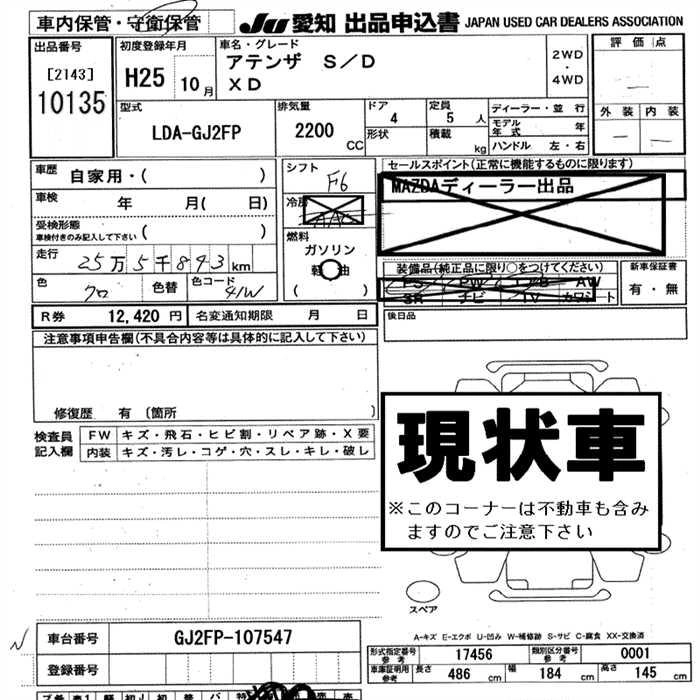 車内保管・守衛保管 JU 愛知 出品申込書 JAPAN USED CAR DEALERS ASSOCIATION
出品番号
[2143]
10135
初度登録年月
H25 10月
車名・グレード
アテンザ S/D
XD
2WD
・
4WD
評価点
外装 内装
型式
LDA-GJ2FP
排気量
2200 CC
ドア
4
定員
5 人
形状
積載 kg
ディーラー・並行
モデル年式 年
ハンドル 左・右
車歴 自家用・( )
車検 年 月( 日)
受検形態
車検付きのみ記入して下さい ( )
走行 25万5千893km
色 クロ 色替 色コード 41W
シフト
F6
冷房
AAC
燃料
ガソリン
軽油
( )
セールスポイント(正常に機能するものに限ります)
MAZDAディーラー出品
装備品(純正品に限り○をつけてください)
PS PW エアB AW
SR ナビ TV カワシート
新車保証書
有・無
R券 12,420円 名変通知期限 月 日
後日品
注意事項申告欄(不具合内容等は具体的に記入して下さい)
修復歴 有 〔箇所 〕
検査員
記入欄
FW キズ・飛石・ヒビ割・リペア跡・X要
内装 キズ・汚レ・コゲ・穴・スレ・キレ・破レ
現状車
※このコーナーは不動車も含み
ますのでご注意下さい
スペア
A-キズ E-エクボ U-凹み W-補修跡 S-サビ C-腐食 XX-交換済
N
車台番号 GJ2FP-107547
登録番号
形式指定番号
参考
17456
類別区分番号
参考
0001
車庫証明用
参考
長さ 486 cm 幅 184 cm 高さ 145 cm